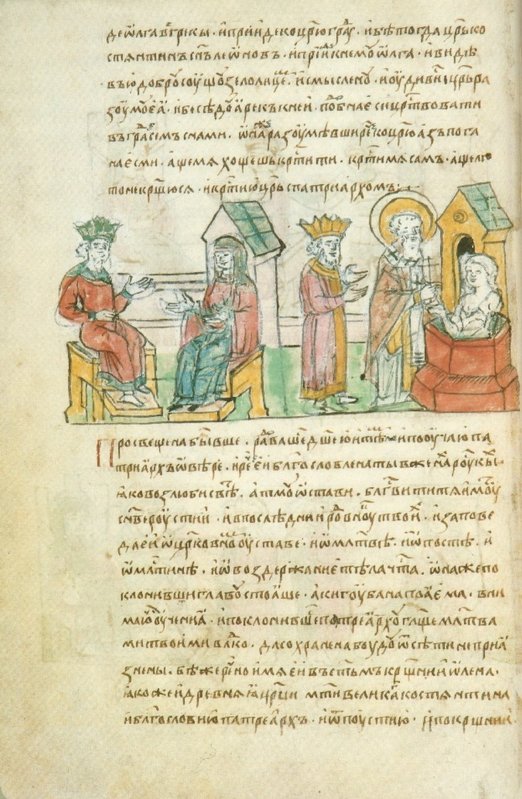 де ѡлга вгрекы · и прииде к црюгра · и бѣ тогда црь ко
стѧнтинъ снъ леѡновъ · и прїи к немоу ѡлга · и видѣ
въ ю доброу соущоу зело лице · и смыслену · и оудиви црь ра
зоумоу еꙗ · и бесѣдоуꙗ рек к неи · побна еси цртвовати
въ граⷣ семъ снами · ѡна разоумѣвши реⷱ к црю азъ пога
на есми · аще мѧ хощешь кртити · крти мѧ самъ · аще ли
то не крщюсѧ · и крти ю црь с патриархомъ :
Просвещена бывше · радовашеⷭ дшею и тѣло и поучи ю па
триархъ ѡ вѣре · и реⷱ еи блгвловлена ты в жена роукы
ꙗко возлюби свѣ · а тмоу ѡстави · блгвити тѧ имоу
снве роустии · и в последнии ро вноу твои · и запове
да еи ѡ црковно оуставе · и ѡ млтвѣ · и ѡ постѣ · и
ѡ млтинѣ · и ѡ воздержание тѣла чта · ѡна же по
клонивши главоу стоꙗше · аки гоуба напаꙗема · вни
маю оучениꙗ · и поклонивше патреархоу глще млтва
ми твоими влко · да сохранена боудоу ѿ сѣти неприꙗ
знены · бѣ же речено имѧ еи въ стѣмъ кршнии ѡлена
ꙗкоже и древнѧꙗ црци мти великаⷢ костѧнтина
и блгослови ю патреархъ · и ѿпоусти ю · и по кршнии